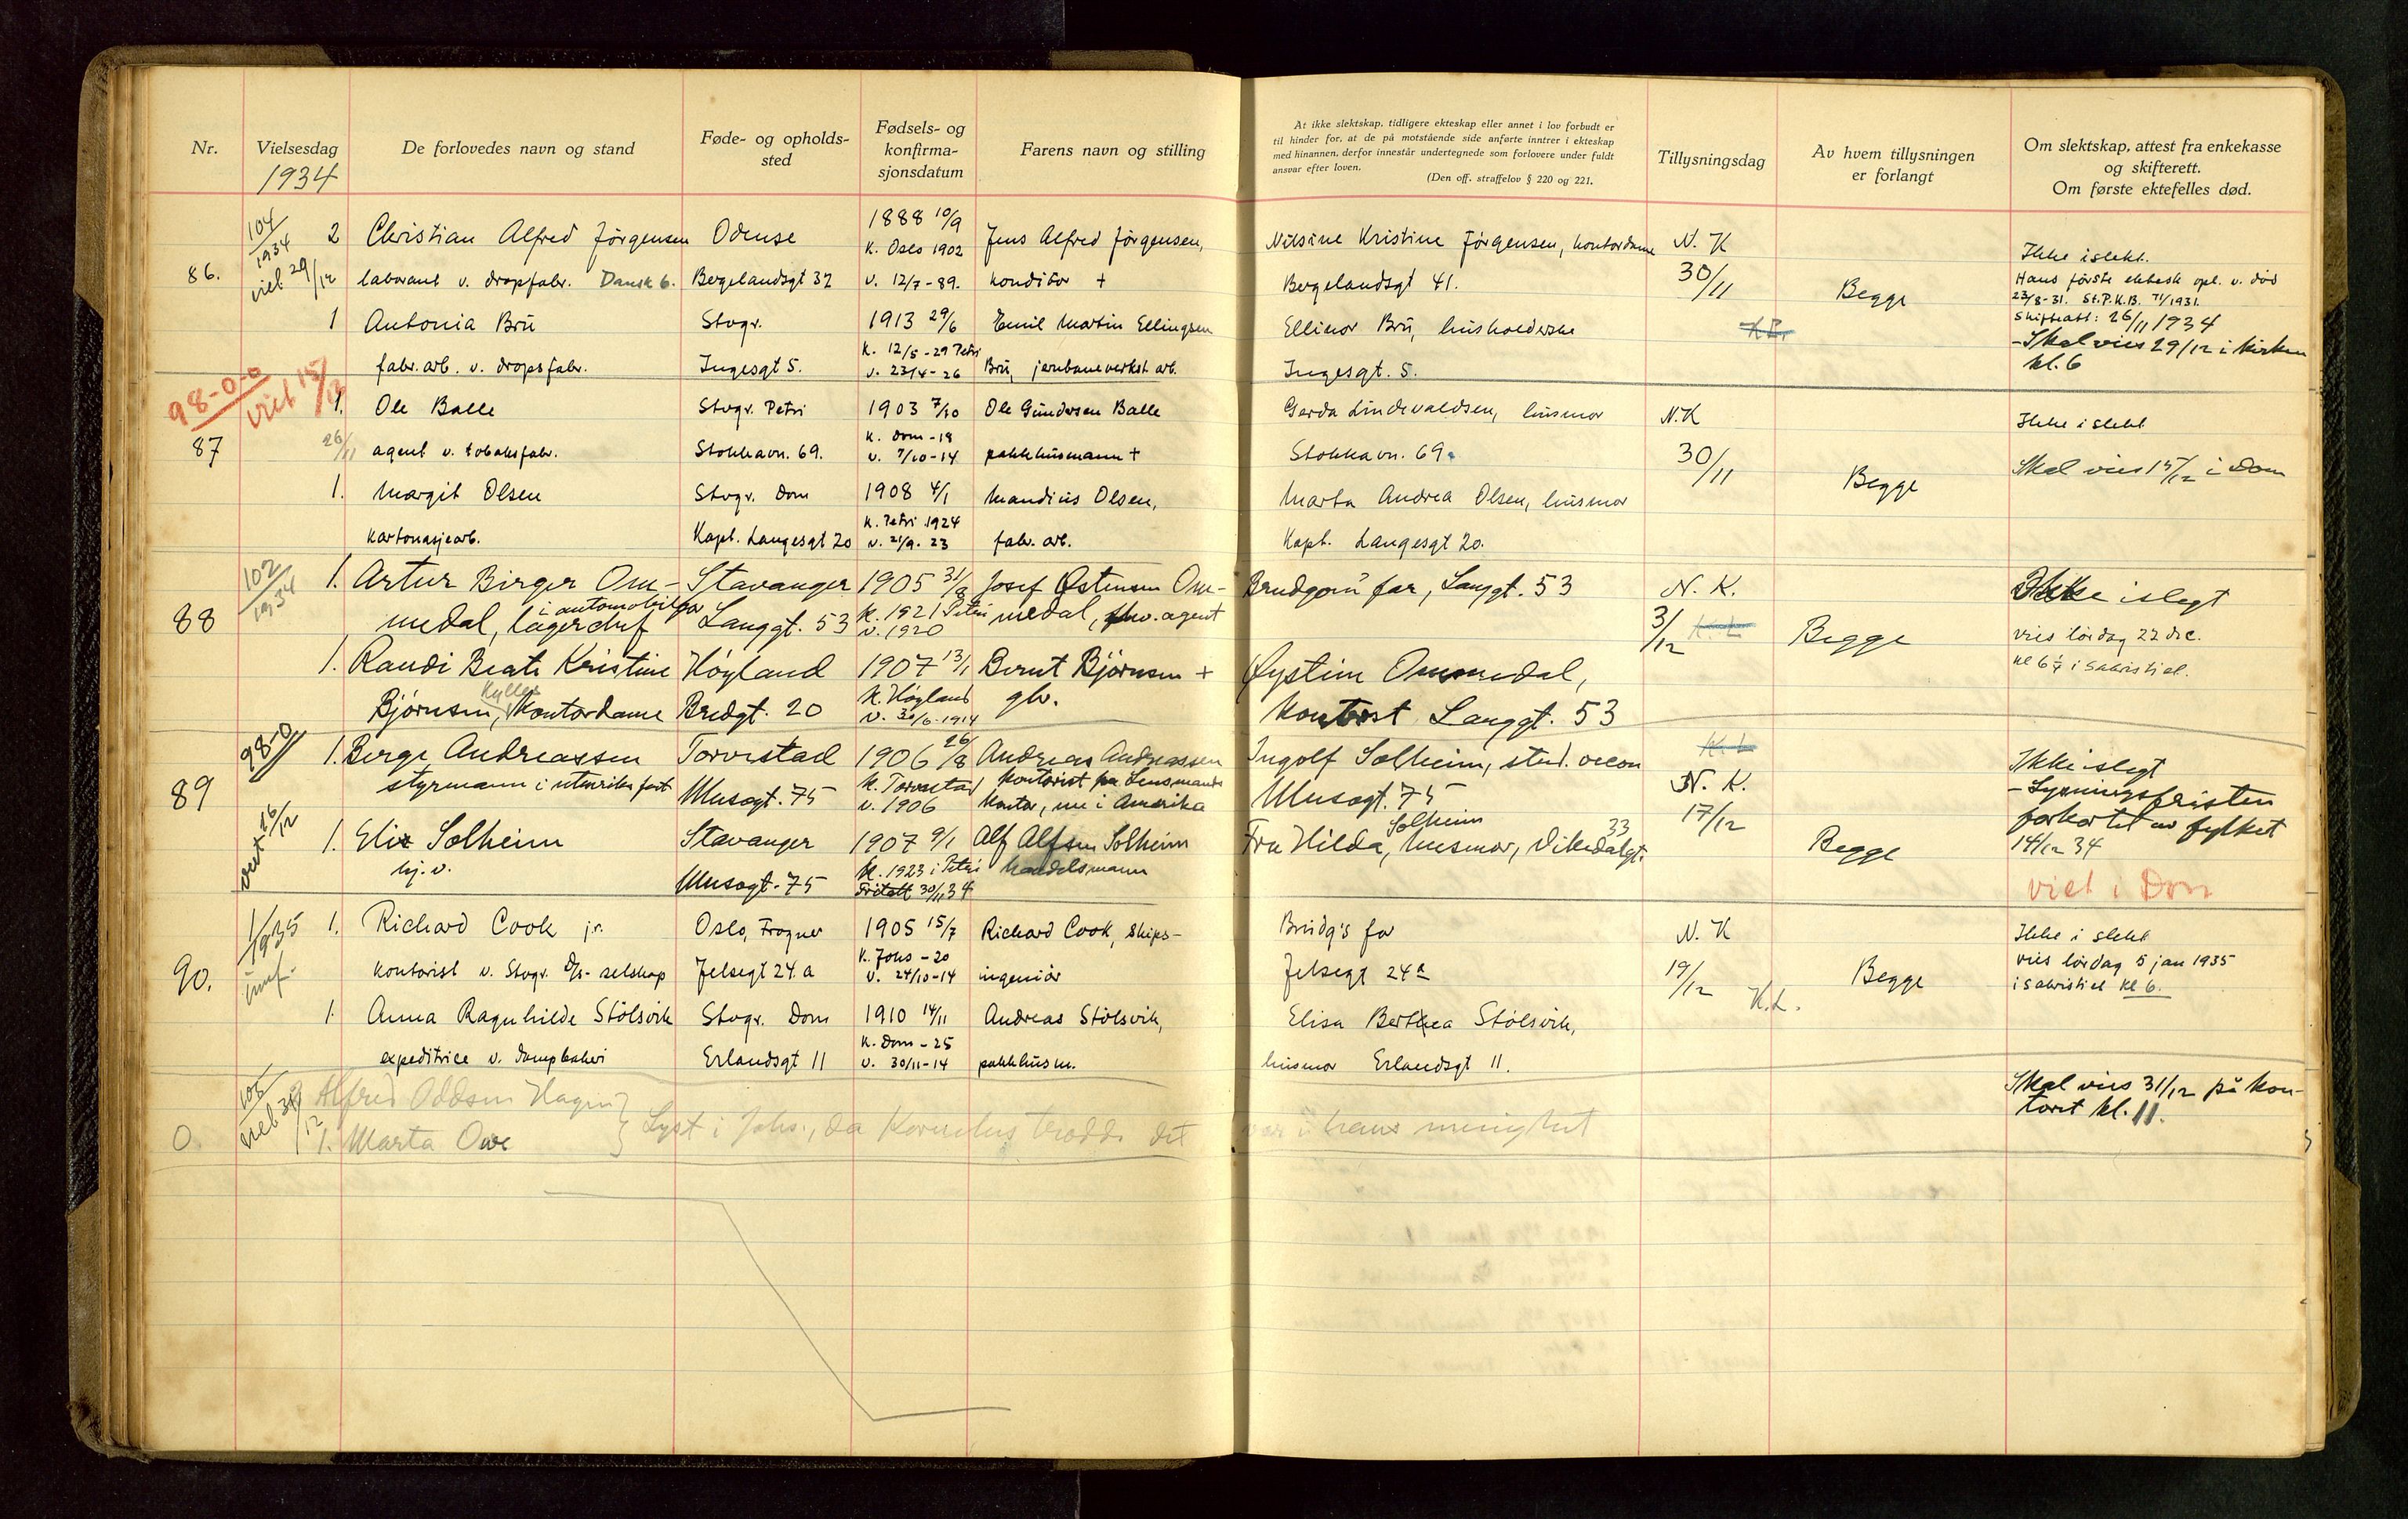 Nr.
Vielsesdag
1934
De forlovedes navn og stand
Føde- og opholds-
sted
Fødsels- og
konfirma-
sjonsdatum
Farens navn og stilling
At ikke slektskap, tidligere ekteskap eller annet i lov forbudt er
til hinder for, at de på motstående side anførte inntrer i ekteskap
med hinannen, derfor innestår undertegnede som forlovere under fuldt
ansvar efter loven.
(Den off. straffelov § 220 og 221.
Tillysningsdag
Av hvem tillysningen
er forlangt
Om slektskap, attest fra enkekasse
og skifterett.
Om første ektefelles død.
86.
104/1934
viet 29/12
2 Christian Alfred Jörgensen
laborant v. dropsfabr. Dansk b.
Odense
Bergelandsgt 32
1888 10/9
K. Oslo 1902
v. 12/7-89.
Jens Alfred Jörgensen,
konditor +
Nilsine Kristine Jörgensen, kontordame
Bergelandsgt 41.
N. K
30/11
Begge
Ikke i slekt.
Hans förste ektesk opl. v. död
23/8-31. St.P.K.B. 71/1931.
Skifteatt: 26/11 1934
- Skal vies 29/12 i kirken
kl. 6
1 Antonia Brü
fabr.arb. v. dropsfabr.
Stvgr.
Ingesgt 5.
1913 29/6
K. 12/5-29 Petri
v. 23/4-26
Emil Martin Ellingsen
Brü, jernbaneverkst arb.
Ellinor Brü, husholderske
Ingesgt. 5.
98-0-0
viet 15/12
87
26/11
1. Ole Balle
agent v. tobaksfabr.
Stvgr. Petri
Stokkavn. 69.
1903 7/10
K. Dom-18
v. 7/10-14
Ole Gundersen Balle
pakkhusmann +
Gerda Lindevaldsen, husmor
Stokkavn. 69.
N.K
30/11
Begge
Ikke i slekt
Skal vies 15/12 i Dom
1. Margit Olsen
kartonasjearb.
Stvgr. Dom
Kapt. Langesgt 20
1908 4/1
K. Petri 1924
v. 21/9-23
Mandius Olsen,
fabr. arb.
Marta Andrea Olsen, husmor
Kapt. Langesgt 20.
88
102/1934
1. Artur Birger Om-
medal, lagerchef
i automobilfor
Stavanger
Langgt. 53
1905 31/8
K. 1921 Petri
v. 1920
Josef Østensen Om-
medal, agent
Brudgom' far, Langgt. 53
N. K.
3/12
Begge
Ikke i slegt
vies lördag 22 dec.
kl 6 1/4 i sakristiet.
1. Randi Beate Kristine
Kylles
Björnsen, Kontordame
Höyland
Bredgt. 20
1907 13/1
K. Höyland
v. 30/6-1914
Bernt Björnsen +
gbr.
Øystein Ommedal,
kontorist Langgt. 53
98-0
89
viet 26/12
1. Berge Andreassen
styrmann i utenriks fart
Torvestad
Musegt. 75
1906 26/8
K. Torvestad
v. 1906
Andreas Andreassen
kontorist på Lensmands
kontor, nu i Amerika
Ingolf Solheim, stud. oecon
Musegt. 75
N. K.
17/12
Begge
Ikke i slegt
- Lysningsfristen
forkortet av fylket
14/12 34
viet i Dom
1. Elis Solheim
hj. v.
Stavanger
Musegt. 75
1907 9/1
K. 1923 i Petri
Fritatt 30/11 34
Alf Alfsen Solheim
handelsmann
Solheim
Fru Hilda, husmor, Vikedalgt. 33
1/1935
90.
1. Richard Cook jr.
kontorist v. Stvgr. D/s-selskap
Oslo, Frogner
Jelsegt 24.a
1905 15/7
K. Johs-20
v. 24/10-14
Richard Cook, skips-
ingeniör
Brudg's far
Jelsegt 24a
N. K
19/12
K.L.
Begge
Ikke i slekt
vies lördag 5 jan 1935
i sakristiet kl 6.
1. Anna Ragnhilde Stölsvik
expeditrice v. dampbakeri
Stvgr. Dom
Erlandsgt 11
1910 14/11
K. Dom-25
v. 30/11-14
Andreas Stölsvik,
pakkhusm.
Elisa Berthea Stölsvik,
husmor Erlandsgt 11.
0.
viet 31/12
Alfred Oddsen Hagen
1. Marta Owe
Lyst i Johs., da Kornelius trodde det var i hans menighet
Skal vies 31/12 på kon-
toret kl. 11.